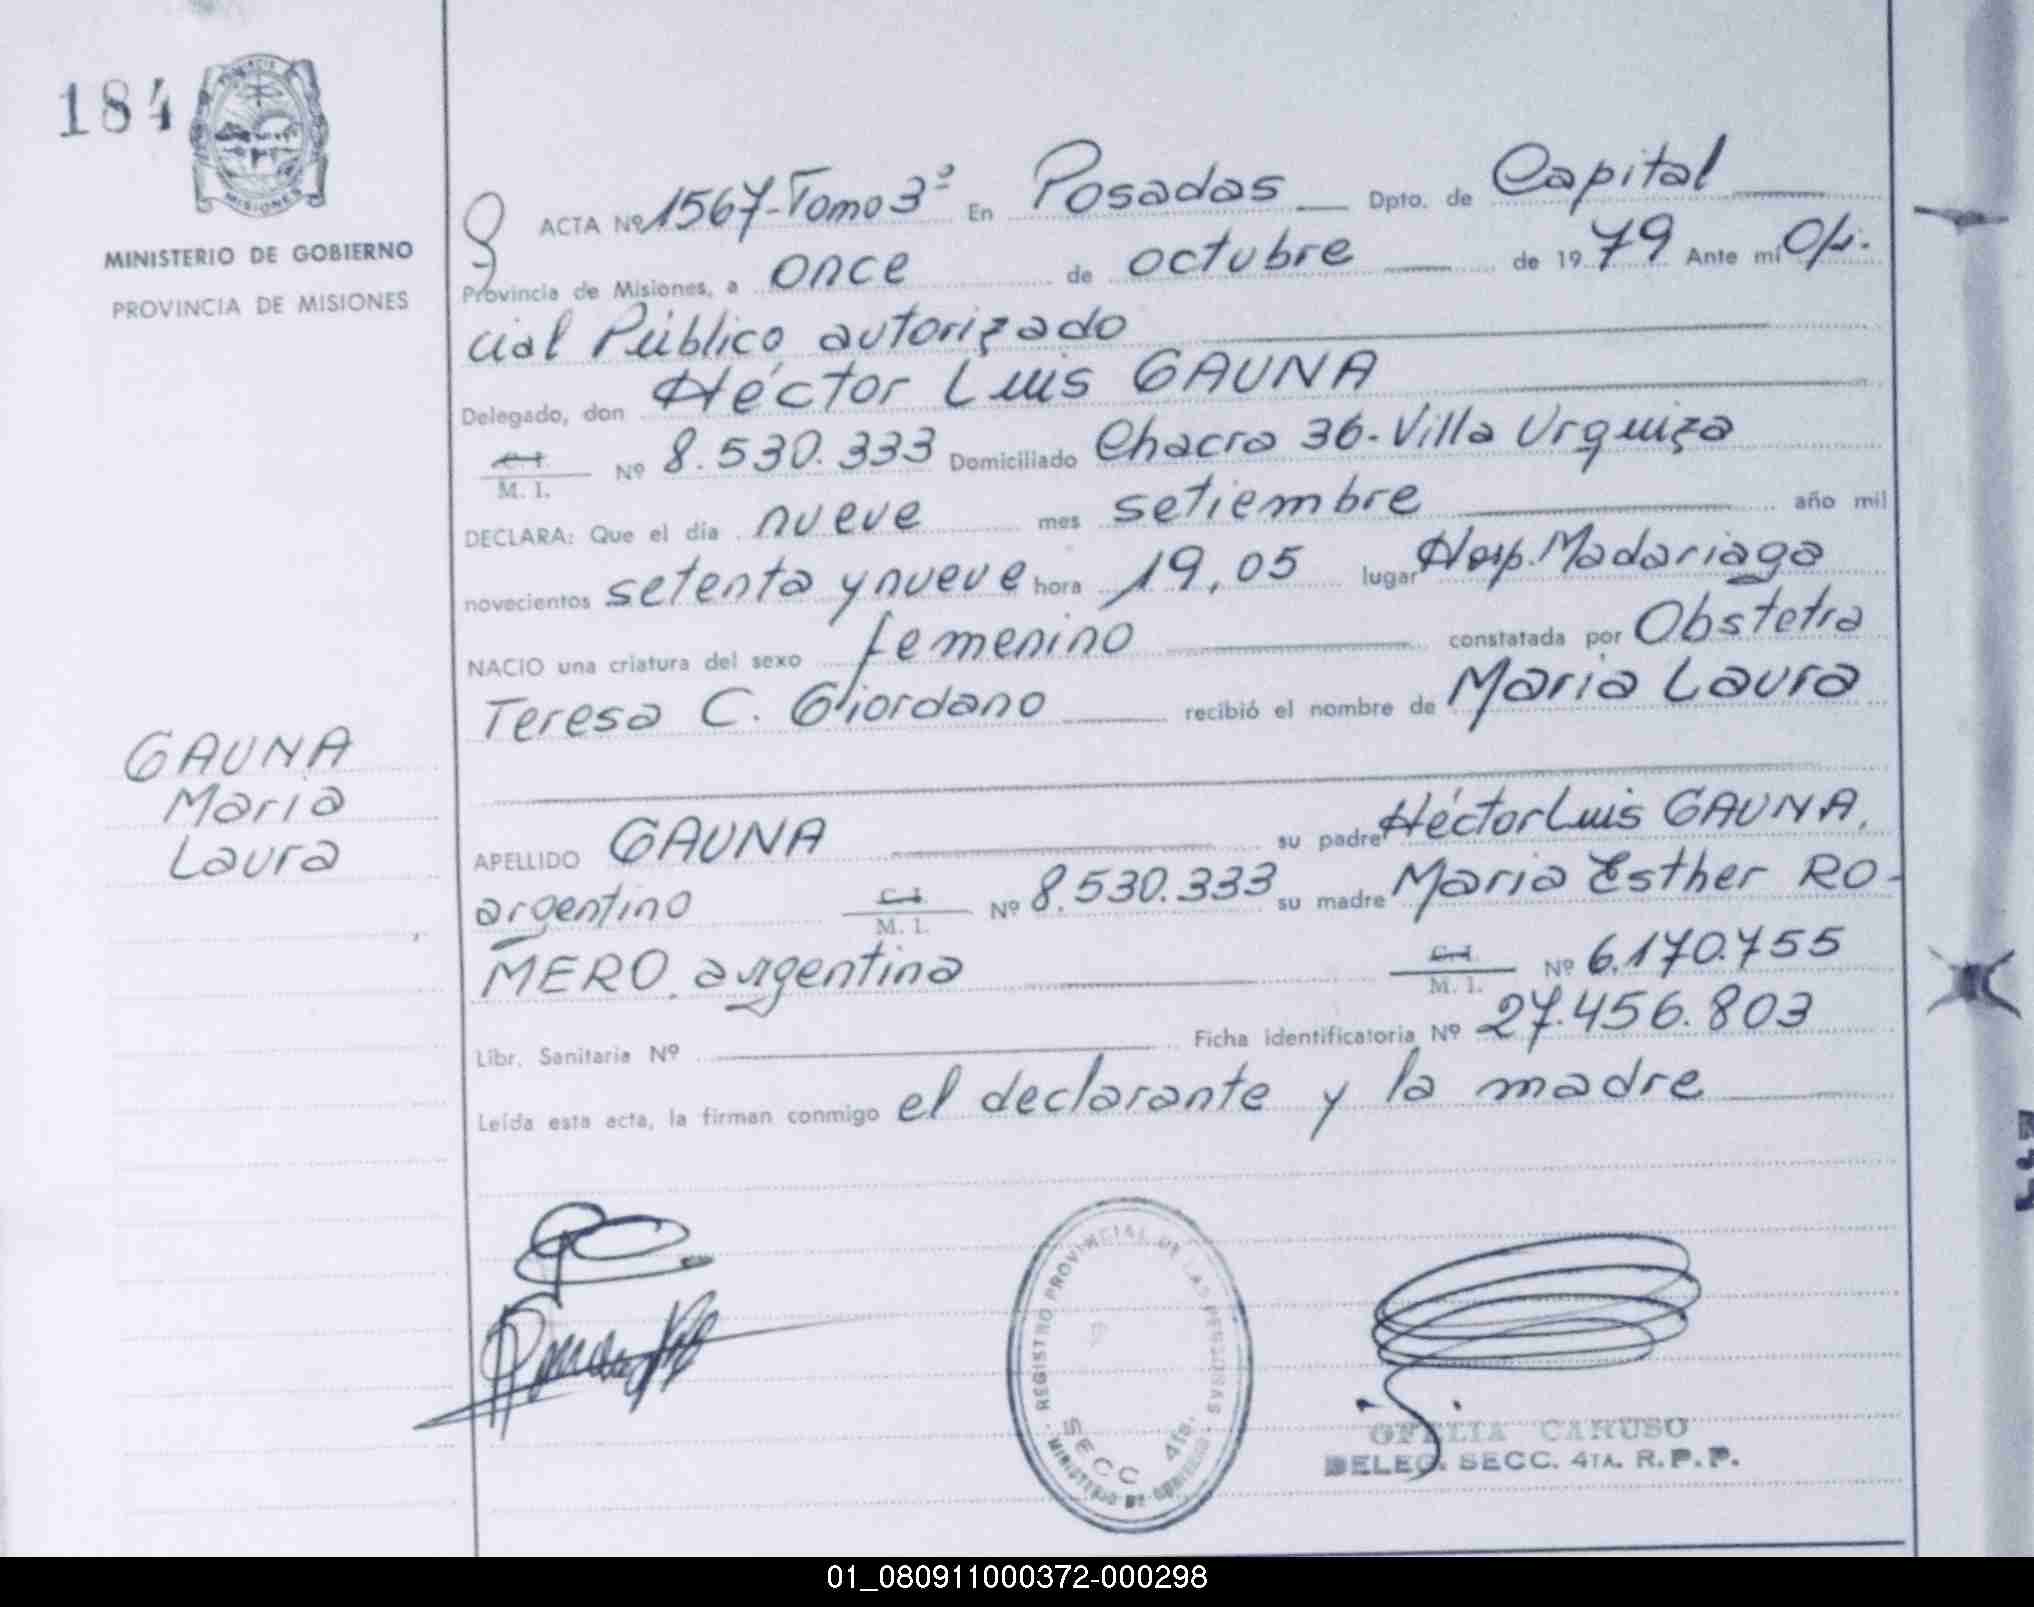 184
MISIONES
MINISTERIO DE GOBIERNO
PROVINCIA DE MISIONES
ACTA Nº 1567-Tomo 3º En Posadas Dpto. de Capital
Provincia de Misiones, a once de octubre de 1979 Ante mí Ofi-
cial Público autorizado
Delegado, don Héctor Luis GAUNA
C. I.
M. I. Nº 8.530.333 Domiciliado Chacra 36-Villa Urquiza
DECLARA: Que el día nueve mes setiembre año mil
novecientos setenta y nueve hora 19,05 lugar Hosp. Madariaga
NACIO una criatura del sexo femenino constatada por Obstetra
Teresa C. Giordano recibió el nombre de María Laura
GAUNA
María
Laura
APELLIDO GAUNA su padre Héctor Luis GAUNA,
argentino C. I.
M. I. Nº 8.530.333 su madre María Esther RO-
MERO. argentina C. I.
M. I. Nº 6.170.755
Libr. Sanitaria Nº Ficha identificatoria Nº 27.456.803
Leída esta acta, la firman conmigo el declarante y la madre
REGISTRO PROVINCIAL DE LAS PERSONAS
SECC 4ta.
MINISTERIO DE GOBIERNO
OFELIA CARUSO
DELEG. SECC. 4TA. R.P.P.
01_080911000372-000298